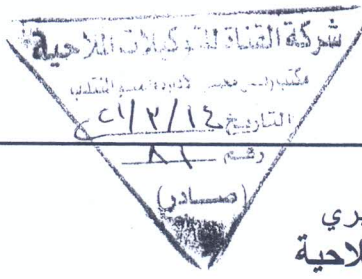 شركة القناة للتوكيلات الملاحية
التاريخ ١٤/٣/٢١
رقم ٨١
(صادر)
يري
لاحية